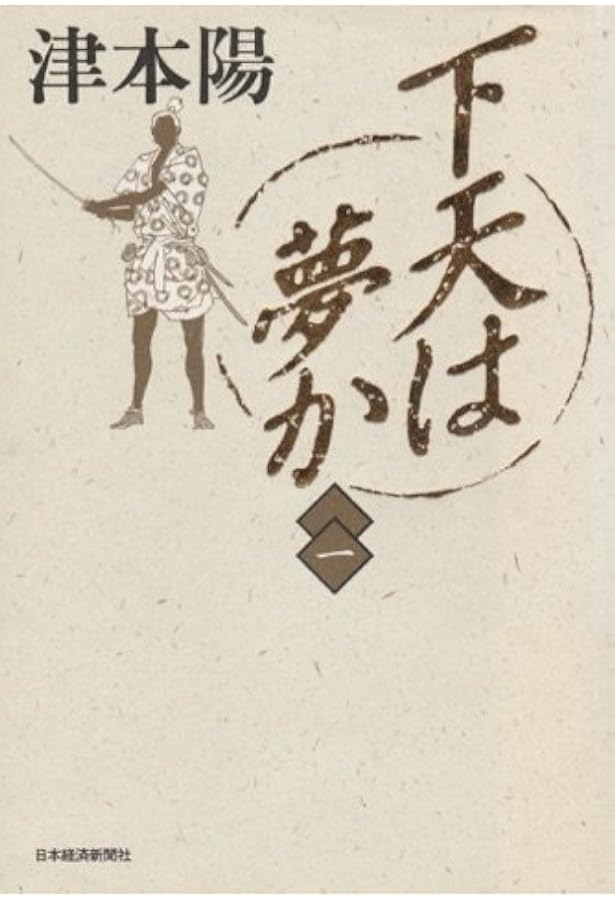 津本陽
下天は
夢か
一
日本経済新聞社